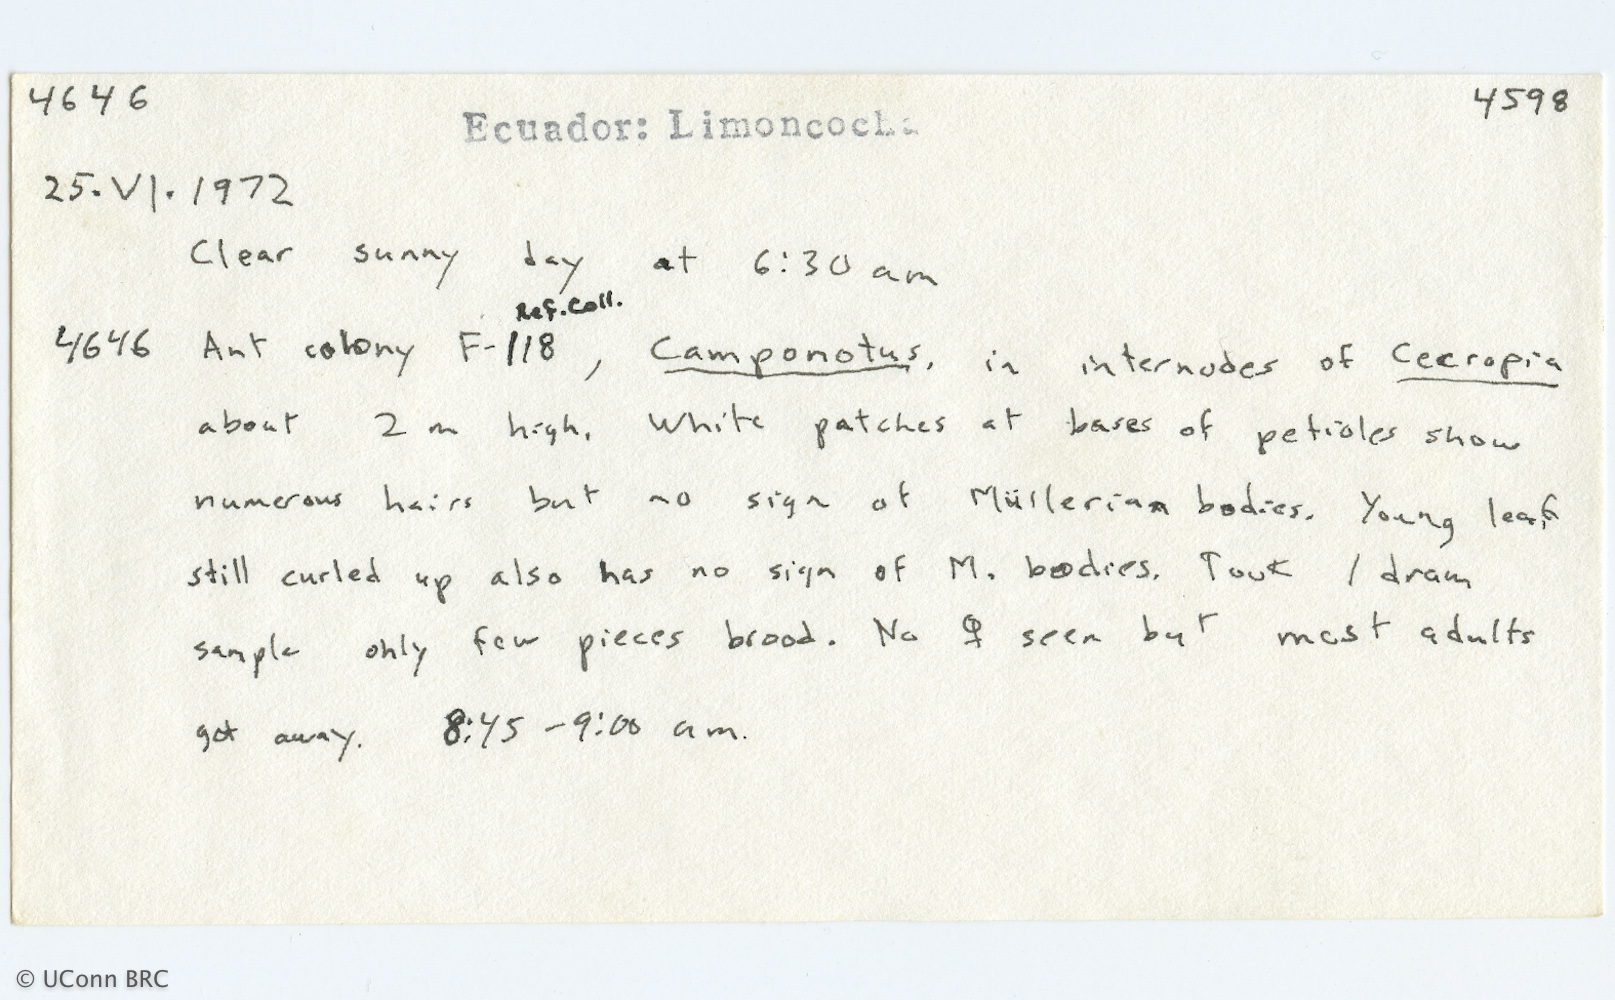 4646 Ecuador: Limoncocha 4598
25.VI.1972
Clear sunny day at 6:30 am
Ref. Coll.
4646 Ant colony F-118, Camponotus, in internodes of Cecropia
about 2 m high. White patches at bases of petioles show
numerous hairs but no sign of Müllerian bodies. Young leaf
still curled up also has no sign of M. bodies. Took 1 dram
sample only few pieces brood. No ♀ seen but most adults
got away. 8:45 - 9:00 am.
© UConn BRC